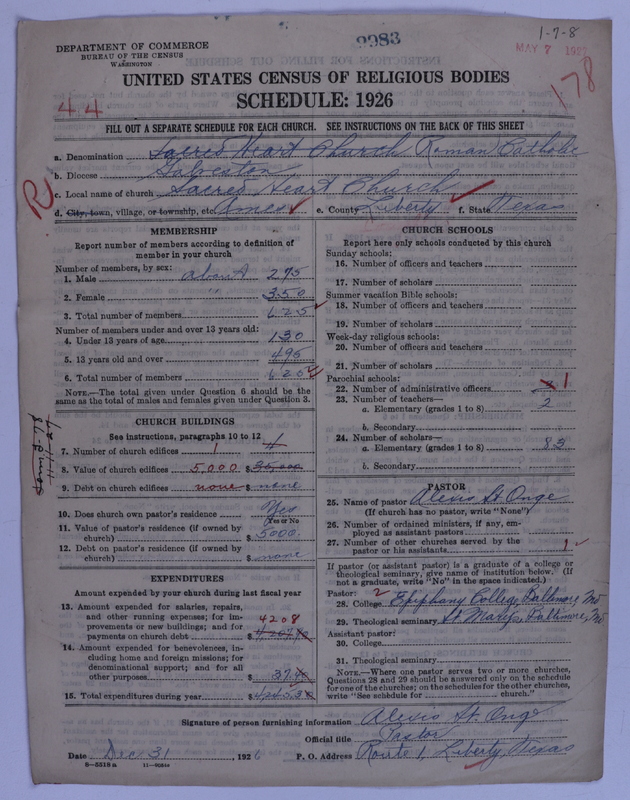 1-7-8
DEPARTMENT OF COMMERCE
BUREAU OF THE CENSUS
WASHINGTON
9983
MAY 7
178
UNITED STATES CENSUS OF RELIGIOUS BODIES
44
SCHEDULE: 1926
FILL OUT A SEPARATE SCHEDULE FOR EACH CHURCH. SEE INSTRUCTIONS ON THE BACK OF THIS SHEET
a. Denomination Sacred Heart Church Roman Catholic
b. Diocese Galveston
c. Local name of church Sacred Heart Church
R
d. City, town, village, or township, etc. Ames e. County Liberty f. State Texas
MEMBERSHIP
Report number of members according to definition of member in your church
Number of members, by sex:
1. Male about 275
2. Female " 350
3. Total number of members 625
Number of members under and over 13 years old:
4. Under 13 years of age 130
5. 13 years old and over 495
6. Total number of members 625
NOTE.—The total given under Question 6 should be the same as the total of males and females given under Question 3.
CHURCH BUILDINGS
See instructions, paragraphs 10 to 12
7. Number of church edifices 1 4
8. Value of church edifices 5,000 $ 35,000
9. Debt on church edifices none $ none
10. Does church own pastor's residence Yes
(Yes or No)
11. Value of pastor's residence (if owned by
church) $ 5000.
12. Debt on pastor's residence (if owned by
church) $ none
EXPENDITURES
Amount expended by your church during last fiscal year
13. Amount expended for salaries, repairs,
and other running expenses; for improvements or new buildings; and for
payments on church debt 4208
14. Amount expended for benevolences, including home and foreign missions; for
denominational support; and for all
other purposes
15. Total expenditures during year
CHURCH SCHOOLS
Report here only schools conducted by this church
Sunday schools:
16. Number of officers and teachers
17. Number of scholars
Summer vacation Bible schools:
18. Number of officers and teachers
19. Number of scholars
Week-day religious schools:
20. Number of officers and teachers
21. Number of scholars
Parochial schools:
22. Number of administrative officers 1
23. Number of teachers—
a. Elementary (grades 1 to 8) 2
b. Secondary
24. Number of scholars—
a. Elementary (grades 1 to 8) 83
b. Secondary
PASTOR
25. Name of pastor Alexis St. Onge
(If church has no pastor, write "None")
26. Number of ordained ministers, if any, employed as assistant pastors
27. Number of other churches served by the
pastor or his assistants 1
If pastor (or assistant pastor) is a graduate of a college or theological seminary, give name of institution below. (If not a graduate, write "No" in the space indicated.)
Pastor: 2
28. College Epiphany College, Baltimore Md
29. Theological seminary St Marys, Baltimore, Md
Assistant pastor:
30. College
31. Theological seminary
NOTE.—Where one pastor serves two or more churches, Questions 28 and 29 should be answered only on the schedule for one of the churches; on the schedules for the other churches, write "See schedule for church."
Signature of person furnishing information Alexis St. Onge
Official title Pastor
Date Dec 31, 1926 P. O. Address Route 1, Liberty, Texas